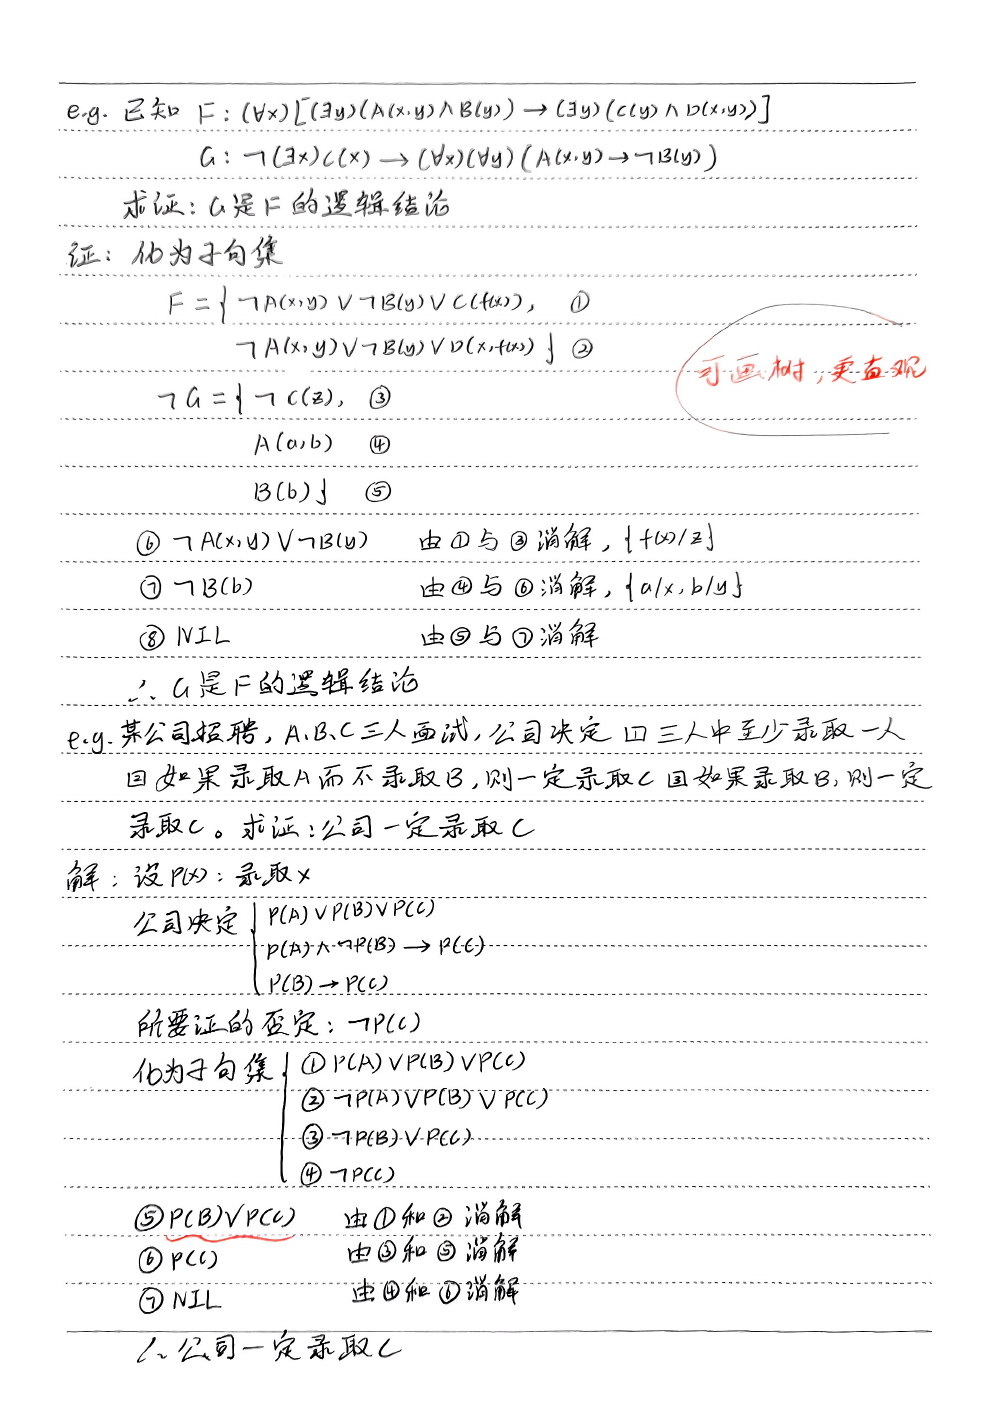 e.g. 已知 F: (∀x)[(∃y)(A(x,y)∧B(y))→(∃y)(C(y)∧D(x,y))]
G: ¬(∃x)C(x)→(∀x)(∀y)(A(x,y)→¬B(y))
求证: G是F的逻辑结论
证: 化为子句集
F={¬A(x,y)∨¬B(y)∨C(f(x)), ①
¬A(x,y)∨¬B(y)∨D(x,f(x))} ②
可画树,更直观
¬G={¬C(z), ③
A(a,b) ④
B(b)} ⑤
⑥ ¬A(x,y)∨¬B(y) 由①与③消解, {f(x)/z}
⑦ ¬B(b) 由④与⑥消解, {a/x, b/y}
⑧ NIL 由⑤与⑦消解
∴ G是F的逻辑结论
e.g. 某公司招聘, A、B、C三人面试, 公司决定 ① 三人中至少录取一人
② 如果录取A而不录取B, 则一定录取C ③ 如果录取B, 则一定
录取C。求证: 公司一定录取C
解: 设P(x): 录取x
公司决定 { P(A)∨P(B)∨P(C)
P(A)∧¬P(B)→P(C)
P(B)→P(C)
所要证的否定: ¬P(C)
化为子句集 { ① P(A)∨P(B)∨P(C)
② ¬P(A)∨P(B)∨P(C)
③ ¬P(B)∨P(C)
④ ¬P(C)
⑤ P(B)∨P(C) 由①和②消解
⑥ P(C) 由③和⑤消解
⑦ NIL 由④和⑥消解
∴ 公司一定录取C